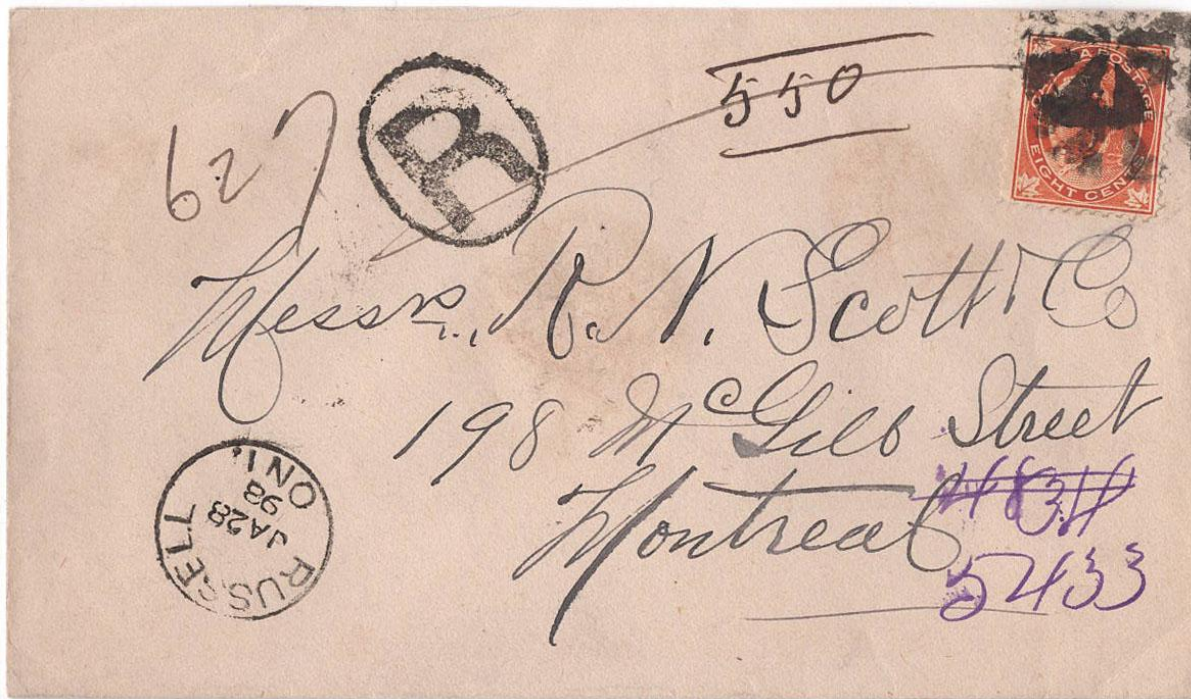 550
627
R
CANADA POSTAGE
EIGHT CENTS
Messrs. R. N. Scott & Co
198 McGill Street
Montreal
5433
RUSSELL
JA 28
98
ONT.